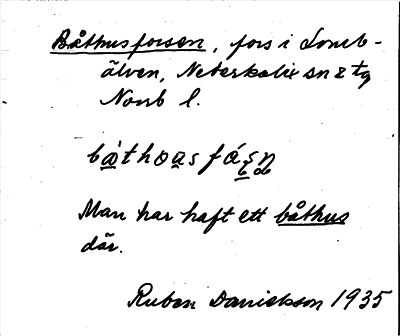 Båthusforsen, fors i Lomb-
älven, Neterkalix sn o tg
Norrb l.
båthoasfáṣn̥
Man har haft ett båthus
där.
Ruben Danielsson 1935